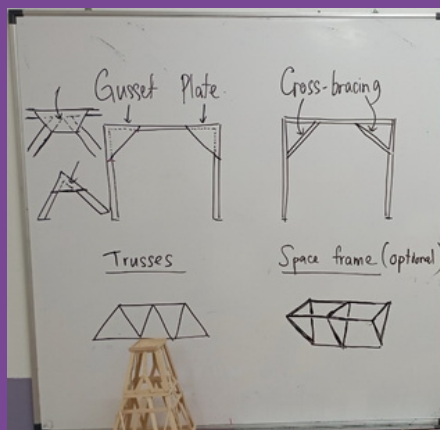 Gusset Plate.
Cross-bracing
Trusses
Space frame (optional)